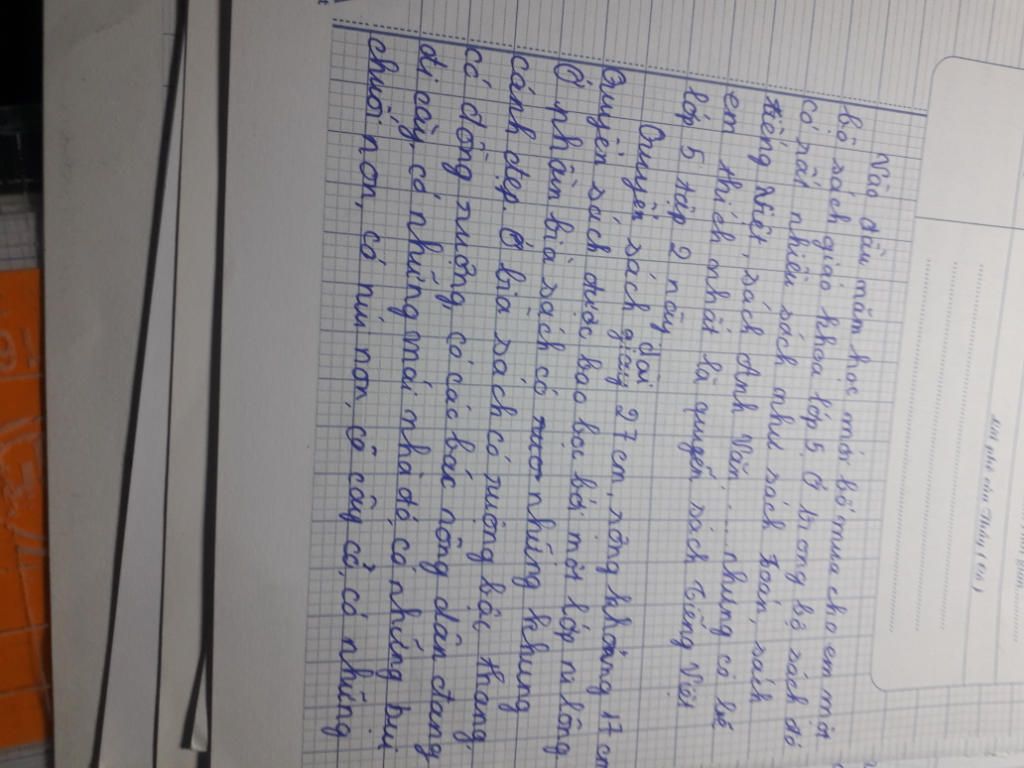 Lời phê của Thầy (Cô)
Vào đầu năm học mới bố mua cho em một
bộ sách giáo khoa lớp 5. Ở trong bộ sách đó
có rất nhiều sách như sách toán, sách
tiếng Việt, sách Anh Văn.... nhưng có lẽ
em thích nhất là quyển sách Tiếng Việt
lớp 5 tập 2 này.
Quyển sách dài
Quyển sách giày 27 cm, rộng khoảng 17 cm
Quyển sách được bao bọc bởi một lớp ni lông
Ở phần bìa sách có những khung
cảnh đẹp. Ở bìa sách có ruộng bậc thang,
có đồng ruộng có các bác nông dân đang
đi cấy, có những mái nhà đỏ, có những bụi
chuối non, có núi non, có cây cỏ, có những